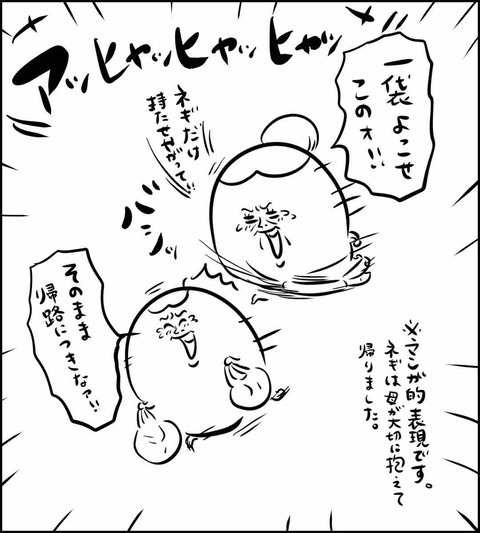 アッヒャッヒャッヒャッ
一袋よこせ
このォ!!
ネギだけ
持たせやがって!!
バシッ
そのまま
帰路につきなァ!!
※マンガ的表現です。
ネギは母が大切に抱えて
帰りました。